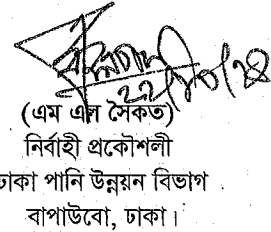 (এম এল সৈকত)
নির্বাহী প্রকৌশলী
ঢাকা পানি উন্নয়ন বিভাগ
বাপাউবো, ঢাকা।